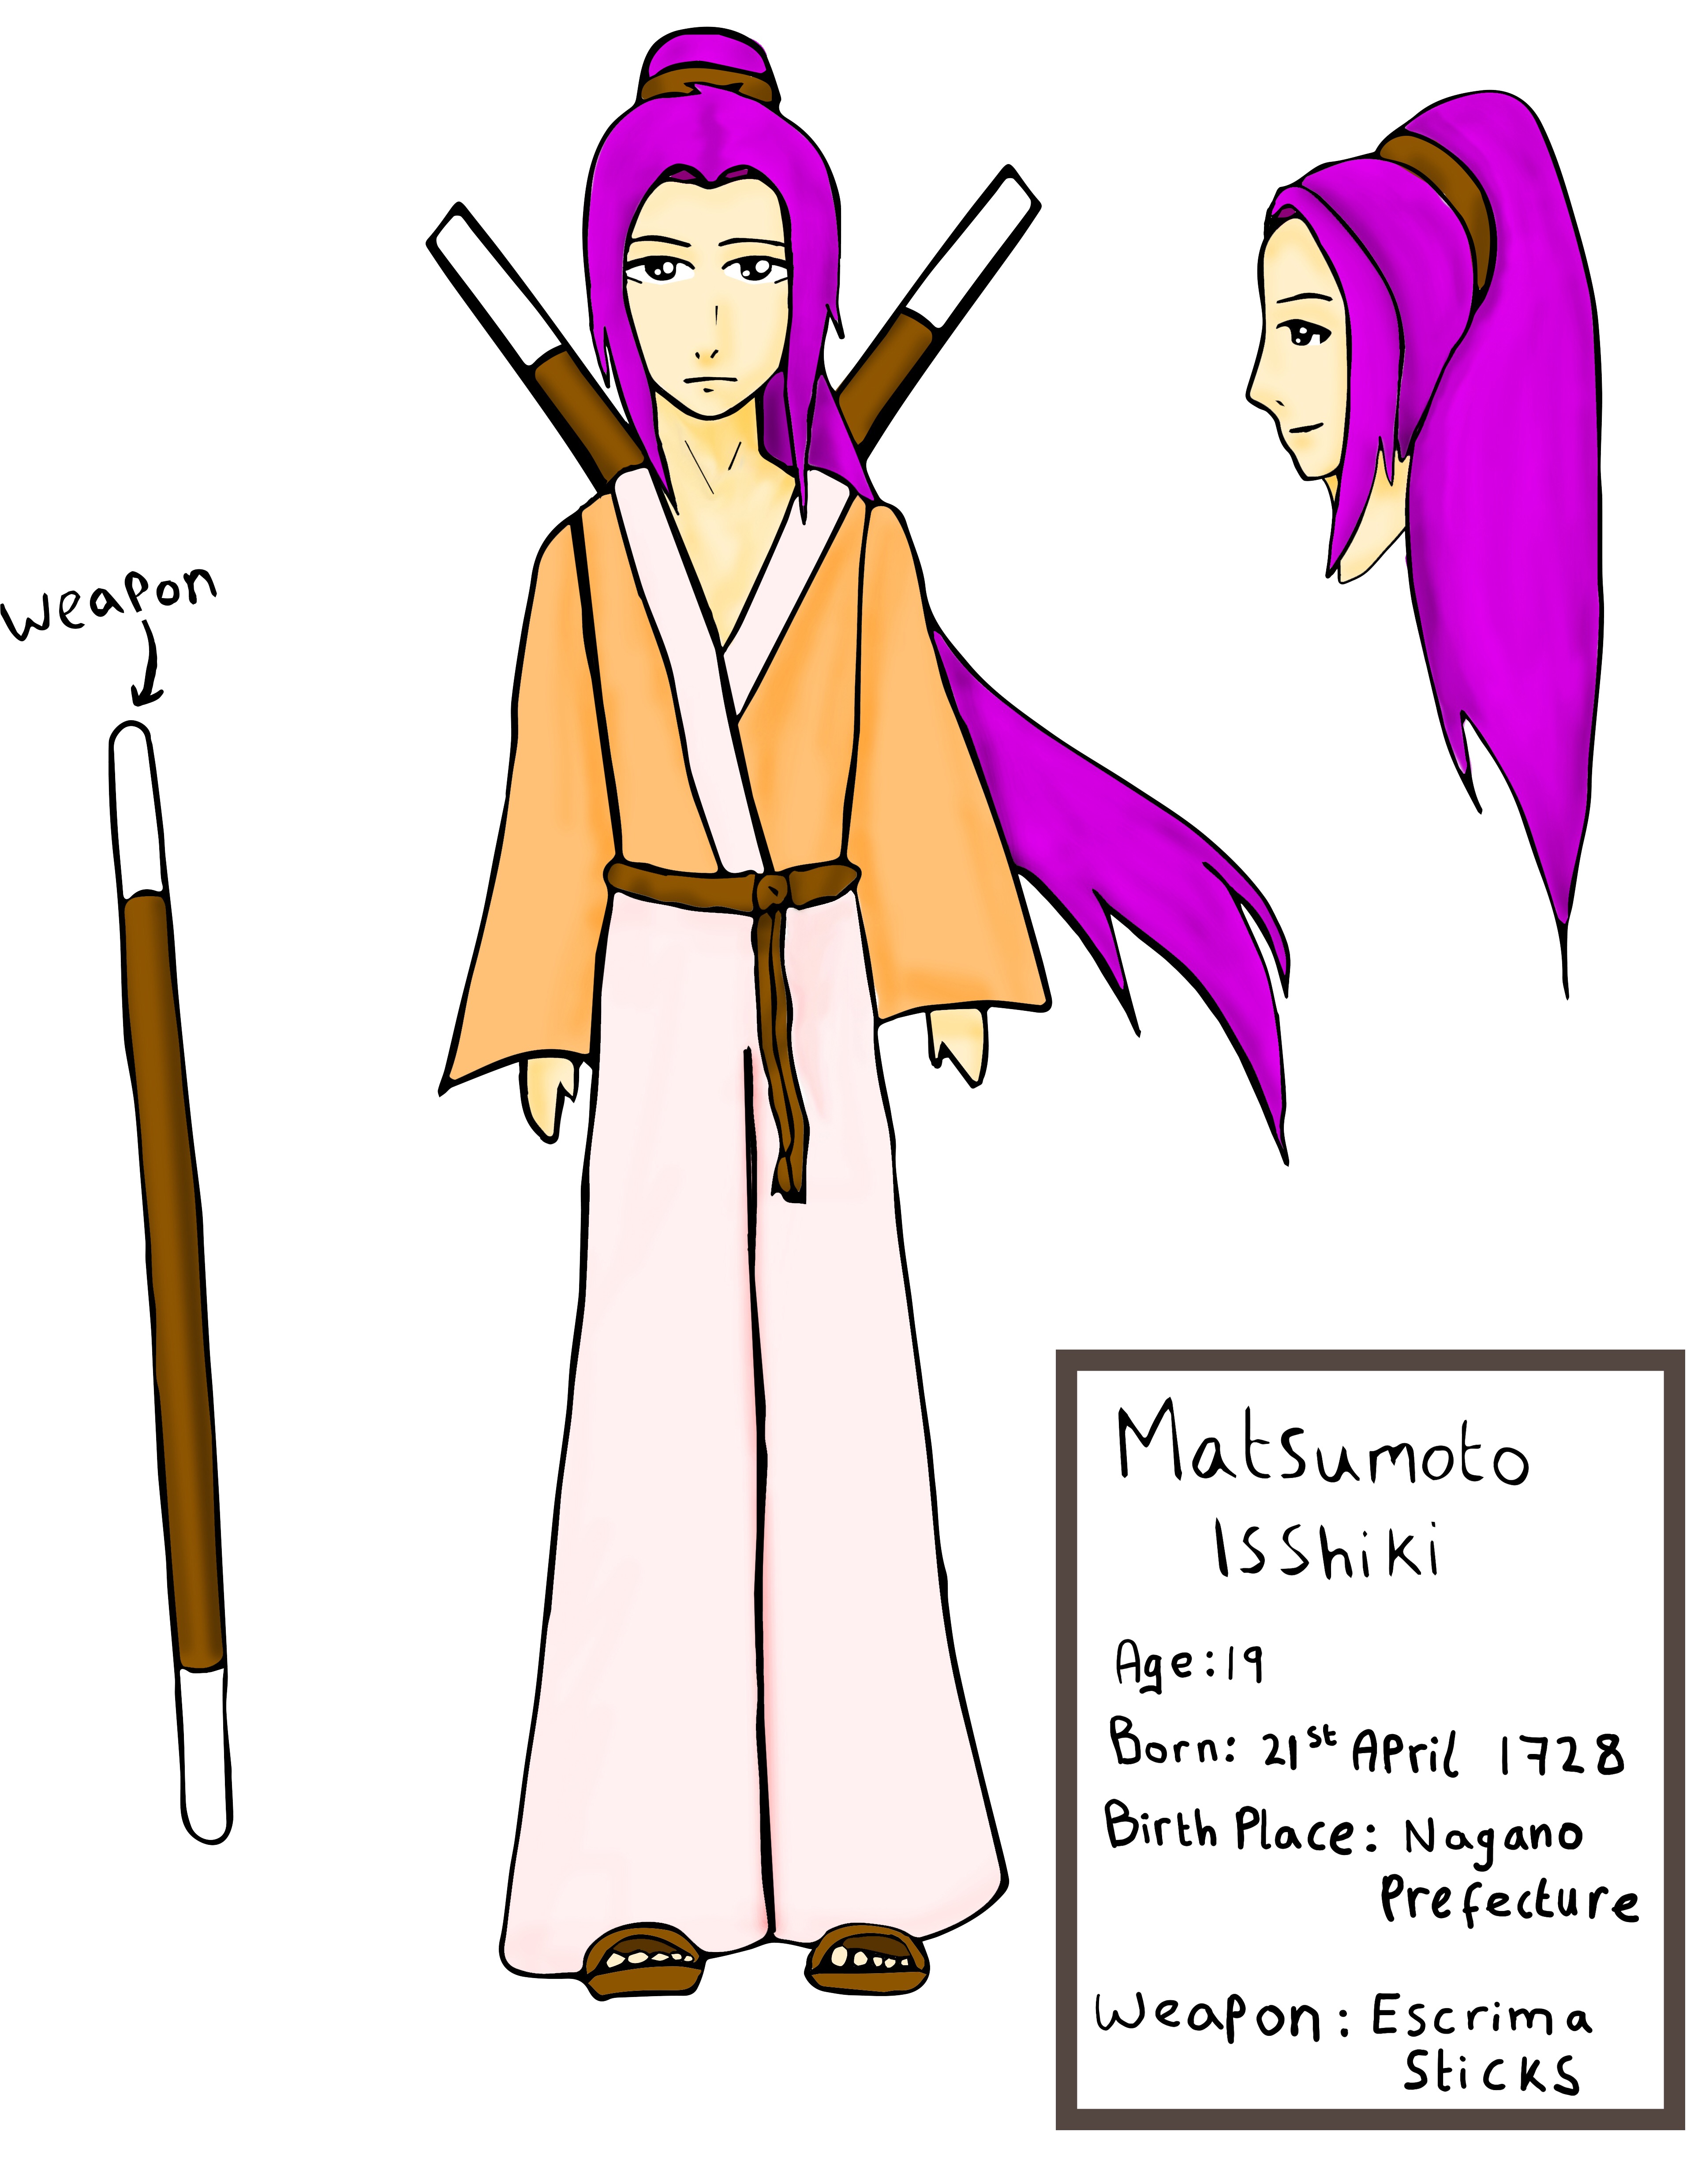 Weapon
Matsumoto
Isshiki
Age: 19
Born: 21st April 1728
Birth Place: Nagano
Prefecture
Weapon: Escrima
Sticks